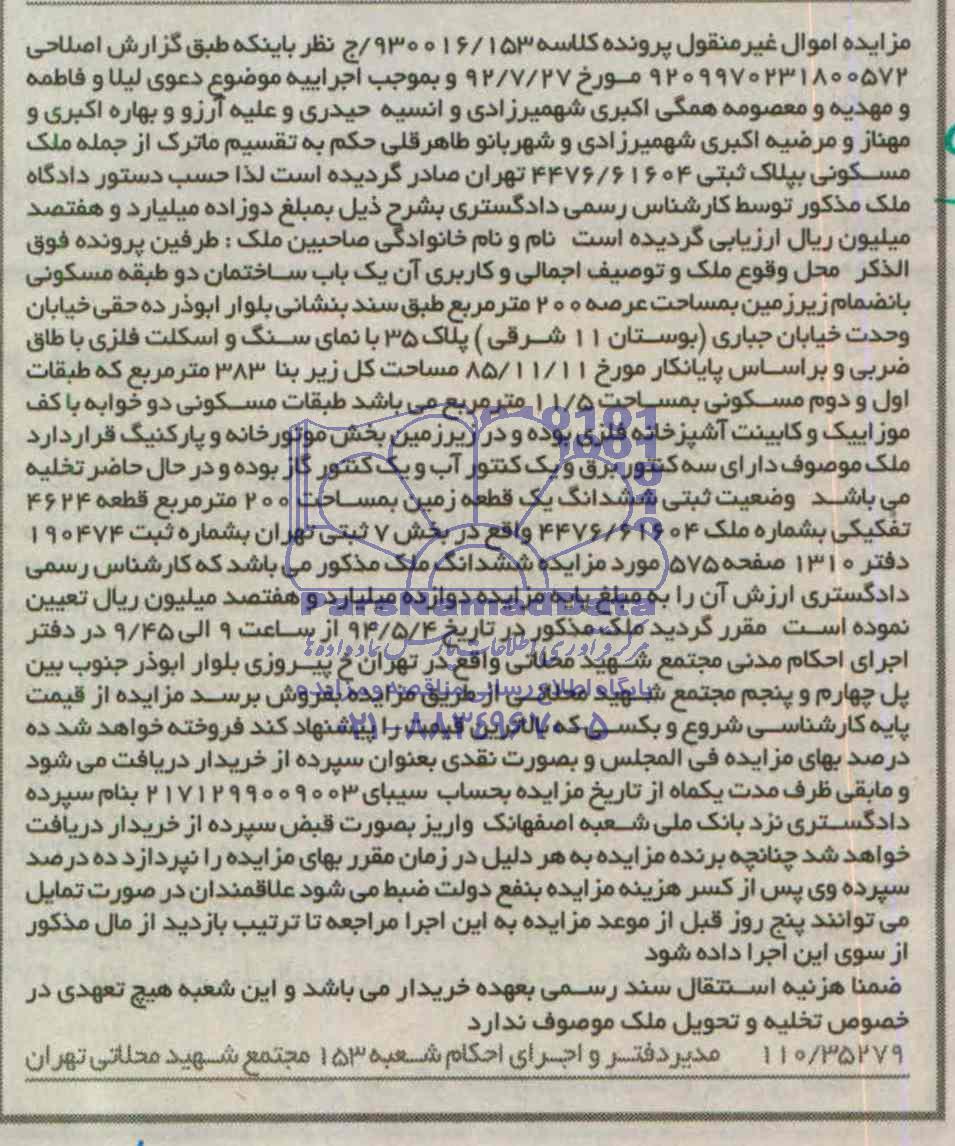 مزایده اموال غیرمنقول پرونده کلاسه ۹۳۰۰۱۶/۱۵۳/ج نظر باینکه طبق گزارش اصلاحی
۹۲۰۹۹۷۰۲۳۱۸۰۰۵۷۲ مورخ ۹۲/۷/۲۷ و بموجب اجراییه موضوع دعوی لیلا و فاطمه
و مهدیه و معصومه همگی اکبری شهمیرزادی و انسیه حیدری و علیه آرزو و بهاره اکبری و
مهناز و مرضیه اکبری شهمیرزادی و شهربانو طاهرقلی حکم به تقسیم ماترک از جمله ملک
مسکونی بپلاک ثبتی ۴۴۷۶/۶۱۶۰۴ تهران صادر گردیده است لذا حسب دستور دادگاه
ملک مذکور توسط کارشناس رسمی دادگستری بشرح ذیل بمبلغ دوزاده میلیارد و هفتصد
میلیون ریال ارزیابی گردیده است نام و نام خانوادگی صاحبین ملک : طرفین پرونده فوق
الذکر محل وقوع ملک و توصیف اجمالی و کاربری آن یک باب ساختمان دو طبقه مسکونی
بانضمام زیرزمین بمساحت عرصه ۲۰۰ مترمربع طبق سند بنشانی بلوار ابوذر ده حقی خیابان
وحدت خیابان جباری (بوستان ۱۱ شرقی ) پلاک ۳۵ با نمای سنگ و اسکلت فلزی با طاق
ضربی و براساس پایانکار مورخ ۸۵/۱۱/۱۱ مساحت کل زیر بنا ۳۸۳ مترمربع که طبقات
اول و دوم مسکونی بمساحت ۱۱/۵ مترمربع می باشد طبقات مسکونی دو خوابه با کف
موزاییک و کابینت آشپزخانه فلزی بوده و در زیرزمین بخش موتورخانه و پارکنیگ قراردارد
ملک موصوف دارای سه کنتور برق و یک کنتور آب و یک کنتور گاز بوده و در حال حاضر تخلیه
می باشد وضعیت ثبتی ششدانگ یک قطعه زمین بمساحت ۲۰۰ مترمربع قطعه ۴۶۲۴
تفکیکی بشماره ملک ۴۴۷۶/۶۱۶۰۴ واقع در بخش ۷ ثبتی تهران بشماره ثبت ۱۹۰۴۷۴
دفتر ۱۳۱۰ صفحه ۵۷۵ مورد مزایده ششدانگ ملک مذکور می باشد که کارشناس رسمی
دادگستری ارزش آن را به مبلغ پایه مزایده دوازده میلیارد و هفتصد میلیون ریال تعیین
ParsNamadData
نموده است مقرر گردید ملک مذکور در تاریخ ۹۴/۵/۴ از ساعت ۹ الی ۹/۴۵ در دفتر
اجرای احکام مدنی مجتمع شهید محلاتی واقع در تهران خ پیروزی بلوار ابوذر جنوب بین
پل چهارم و پنجم مجتمع شهید محلاتی از طریق مزایده بفروش برسد مزایده از قیمت
پایگاه اطلاع رسانی مناقصه و مزایده
پایه کارشناسی شروع و بکسی که بالاترین قیمت را پیشنهاد کند فروخته خواهد شد ده
۰۲۱-۸۸۳۴۹۶۷۰-۵
درصد بهای مزایده فی المجلس و بصورت نقدی بعنوان سپرده از خریدار دریافت می شود
و مابقی ظرف مدت یکماه از تاریخ مزایده بحساب سیبای ۲۱۷۱۲۹۹۰۰۹۰۰۳ بنام سپرده
دادگستری نزد بانک ملی شعبه اصفهانک واریز بصورت قبض سپرده از خریدار دریافت
خواهد شد چنانچه برنده مزایده به هر دلیل در زمان مقرر بهای مزایده را نپردازد ده درصد
سپرده وی پس از کسر هزینه مزایده بنفع دولت ضبط می شود علاقمندان در صورت تمایل
می توانند پنج روز قبل از موعد مزایده به این اجرا مراجعه تا ترتیب بازدید از مال مذکور
از سوی این اجرا داده شود
ضمنا هزنیه استنقال سند رسمی بعهده خریدار می باشد و این شعبه هیچ تعهدی در
خصوص تخلیه و تحویل ملک موصوف ندارد
۱۱۰/۳۵۲۷۹ مدیردفتر و اجرای احکام شعبه ۱۵۳ مجتمع شهید محلاتی تهران